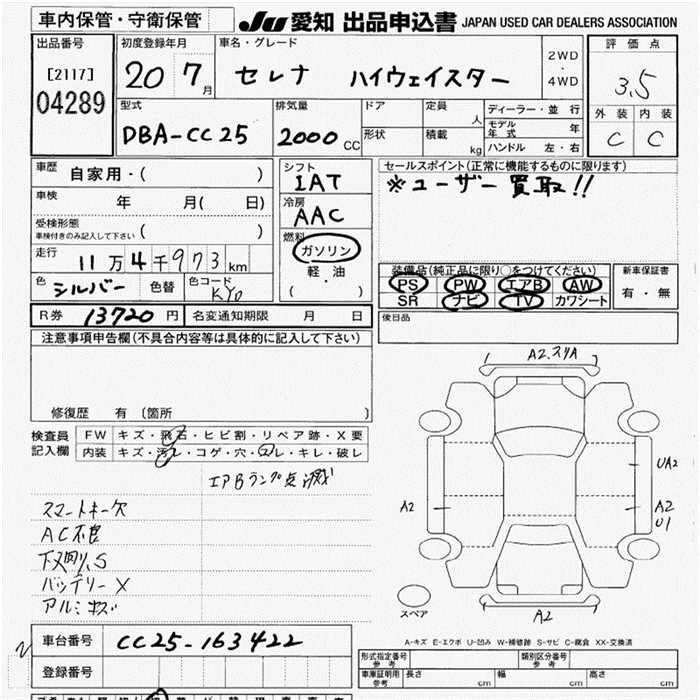 車内保管・守衛保管
JU 愛知 出品申込書 JAPAN USED CAR DEALERS ASSOCIATION
出品番号
[2117]
04289
初度登録年月
20 7月
車名・グレード
セレナ ハイウェイスター
2WD
・
4WD
評価点
3.5
外装 内装
C C
型式
DBA-CC25
排気量
2000 CC
ドア
形状
定員 人
積載 kg
ディーラー・並行
モデル年式 年
ハンドル 左・右
車歴
自家用・( )
車検 年 月( 日)
受検形態
車検付きのみ記入して下さい ( )
走行 11万4千973km
色 シルバー 色替 色コード KY0
シフト
IAT
冷房
AAC
燃料
ガソリン
軽油
( ・ )
セールスポイント(正常に機能するものに限ります)
※ユーザー買取!!
装備品(純正品に限り○をつけてください)
PS PW エアB AW
SR ナビ TV カワシート
新車保証書
有・無
R券 13720円 名変通知期限 月 日
後日品
注意事項申告欄(不具合内容等は具体的に記入して下さい)
修復歴 有 〔箇所 〕
検査員
記入欄
FW キズ・飛石・ヒビ割・リペア跡・X要
内装 キズ・汚レ・コゲ・穴・スレ・キレ・破レ
エアBランプ点滅
スマートキー欠
AC不良
下又刷、S
バッテリーX
アルミキズ
A2.スリA
UA2
A2
A2
U1
A2
スペア
A-キズ E-エクボ U-凹み W-補修跡 S-サビ C-腐食 XX-交換済
車台番号 CC25-163422
登録番号
形式指定番号
参考
類別区分番号
参考
車庫証明用
参考
長さ cm 幅 cm 高さ cm